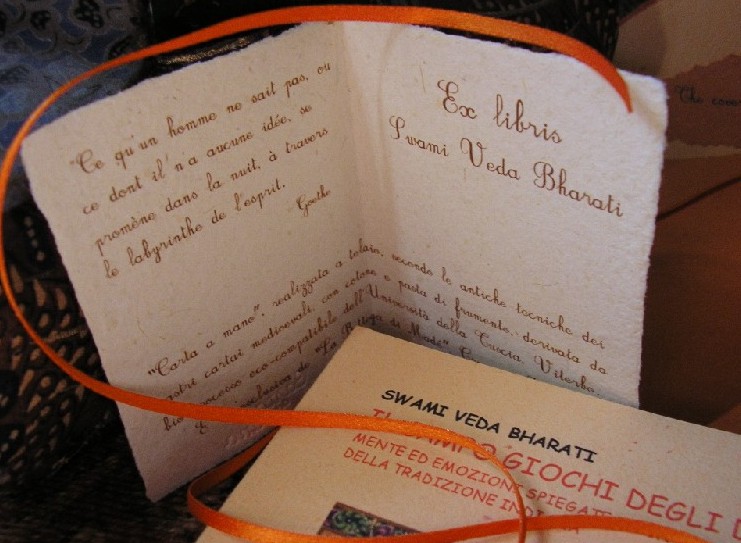 "Ce qu'un homme ne sait pas, ou
ce dont il n'a aucune idée, se
promène dans la nuit, à travers
le labyrinthe de l'esprit.
Goethe
Ex libris
Swami Veda Bharati
"Carta a mano", realizzata a telaio, secondo le antiche tecniche dei
mastri cartai medioevali, con cotone e pasta di frumento, derivata da
processo eco-compatibile dell'Università della Tuscia Viterbo,
esclusiva de "La Bottega di Mody"
SWAMI VEDA BHARATI
IL CAMPO GIOCHI DEGLI
MENTE ED EMOZIONI SPIEGATE
DELLA TRADIZIONE
The